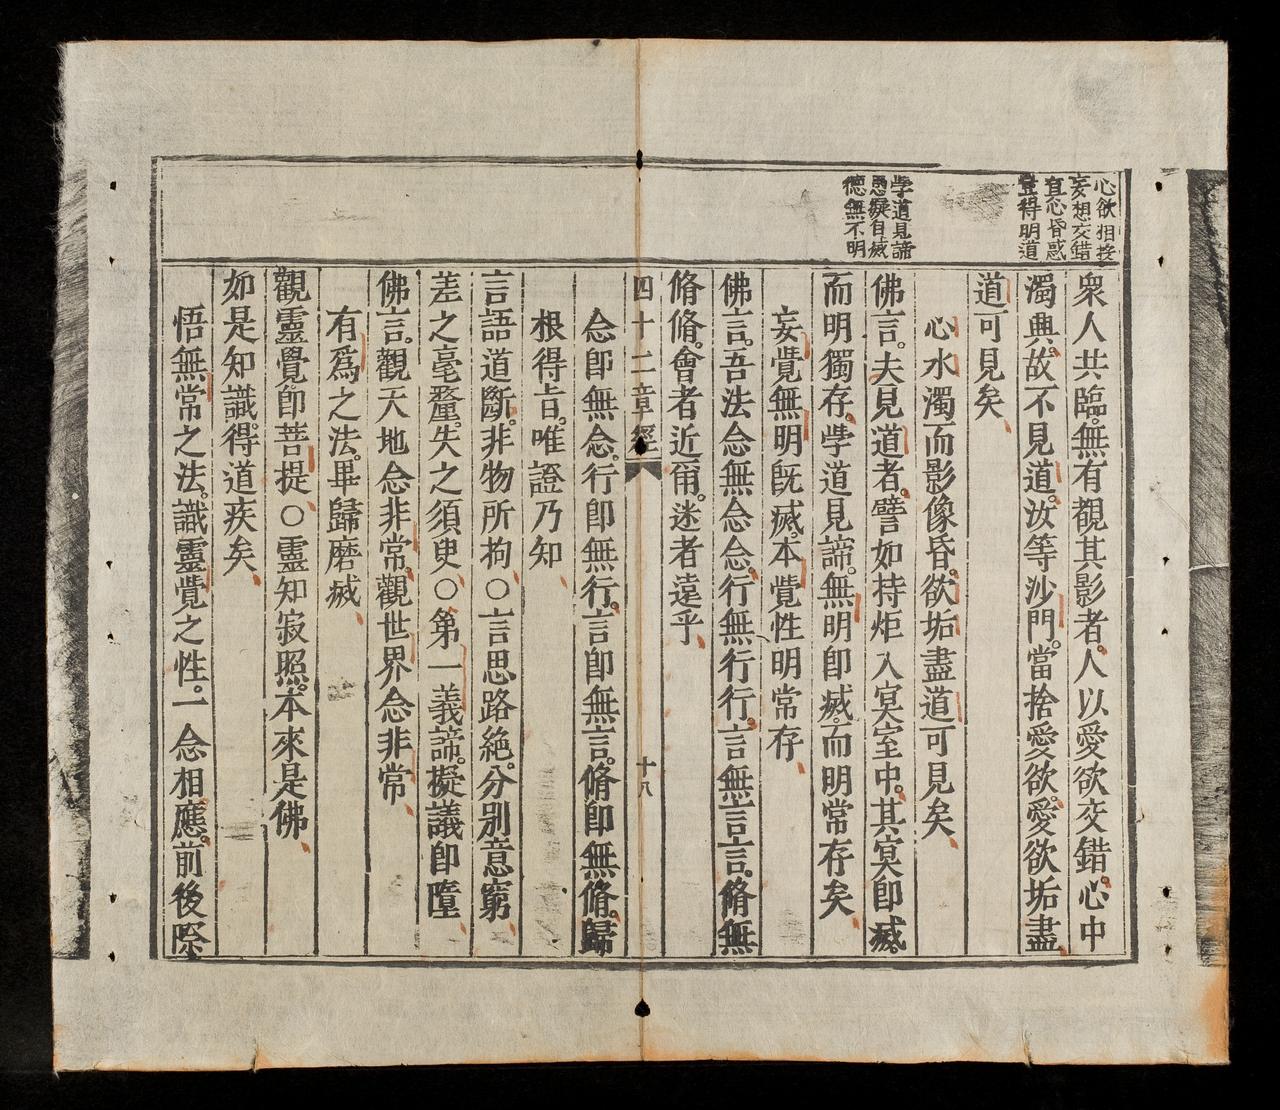 心欲相投
妄想交錯
直心昏惑
豈得明道
學道見諦
愚癡自滅
德無不明
衆人共臨。無有覩其影者。人以愛欲交錯。心中
濁興。故不見道。汝等沙門。當捨愛欲。愛欲垢盡
道可見矣、
心水濁而影像昏。欲垢盡道可見矣、
佛言。夫見道者。譬如持炬入冥室中。其冥卽滅。
而明獨存。學道見諦。無明卽滅。而明常存矣、
妄覺無明旣滅。本覺性明常存、
佛言。吾法念無念念。行無行行。言無言言。脩無
脩脩。會者近爾。迷者遠乎、
四十二章經
十八
念卽無念。行卽無行。言卽無言。脩卽無脩。歸
根得旨。唯證乃知、
言語道斷。非物所拘○言思路絶。分別意窮、
差之毫釐。失之須臾○第一義諦。擬議卽墮、
佛言。觀天地念非常。觀世界念非常、
有爲之法。畢歸磨滅、
觀靈覺卽菩提、○靈知寂照。本來是佛、
如是知識。得道疾矣、
悟無常之法。識靈覺之性。一念相應。前後際